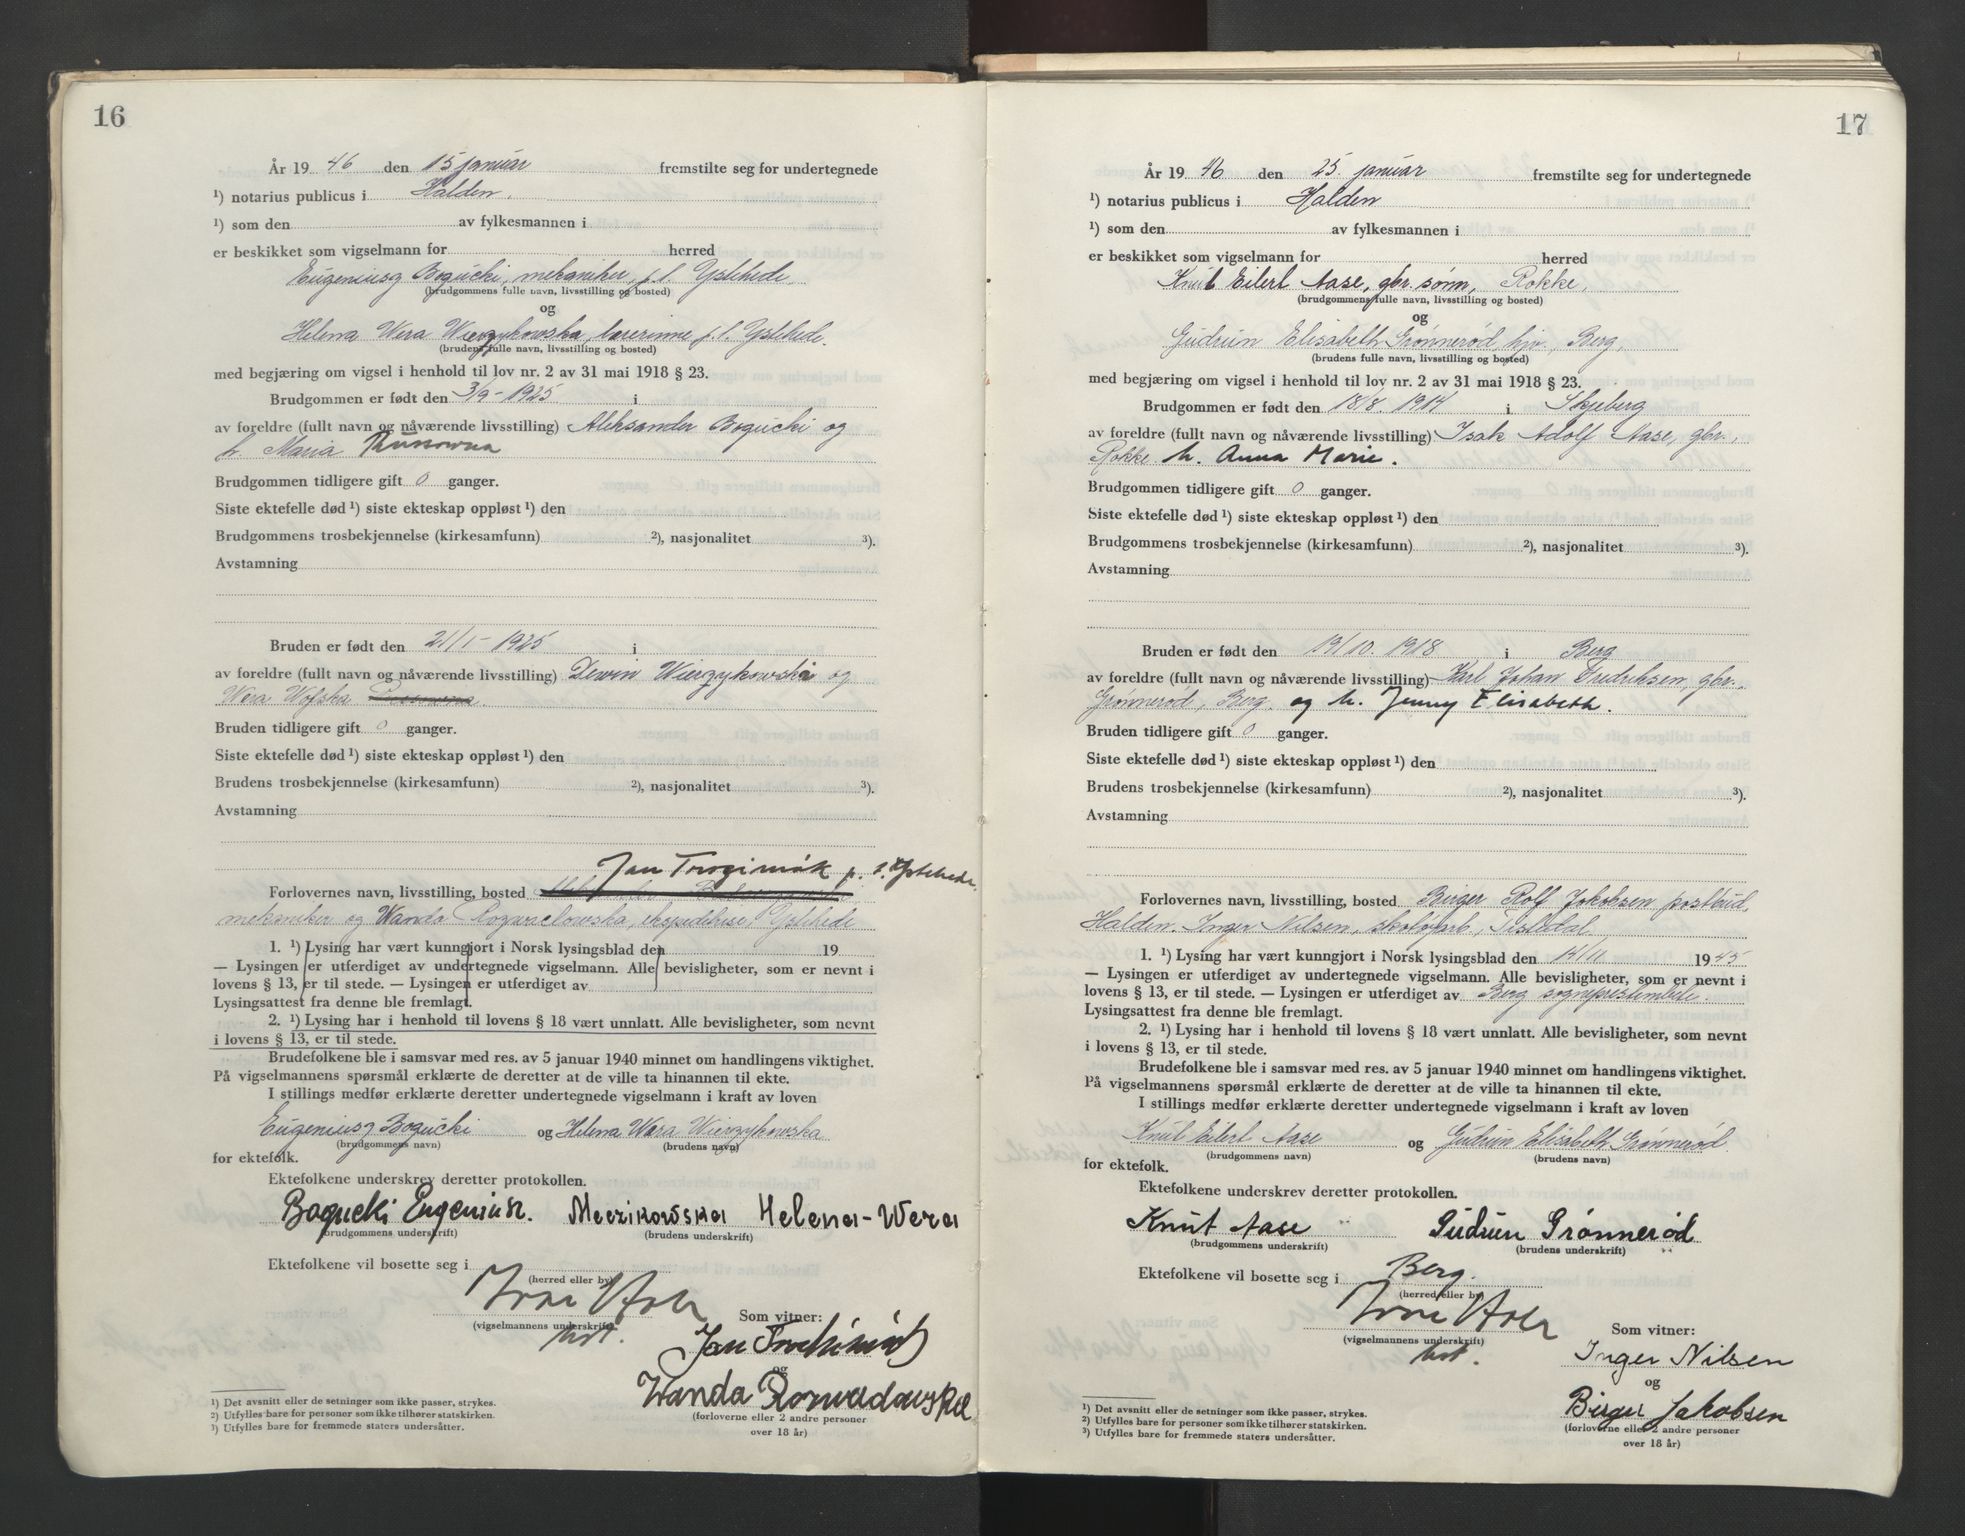 16
År 19 46 den 15 januar fremstilte seg for undertegnede
¹) notarius publicus i Halden.
¹) som den av fylkesmannen i
er beskikket som vigselmann for herred
Eugeniusz Bogucki, mekaniker, p.t. Ystehede.
(brudgommens fulle navn, livsstilling og bosted)
og
Helena Wera Wierzykowska, lærerinne p.t. Ystehede.
(brudens fulle navn, livsstilling og bosted)
med begjæring om vigsel i henhold til lov nr. 2 av 31 mai 1918 § 23.
Brudgommen er født den 3/9 - 1925 i
av foreldre (fullt navn og nåværende livsstilling) Aleksander Bogucki og
h. Maria
Brudgommen tidligere gift 0 ganger.
Siste ektefelle død ¹) siste ekteskap oppløst ¹) den
Brudgommens trosbekjennelse (kirkesamfunn) ²), nasjonalitet ³).
Avstamning
Bruden er født den 21/1 - 1925 i
av foreldre (fullt navn og nåværende livsstilling) Wierzykowski og
Wera
Bruden tidligere gift 0 ganger.
Siste ektefelle død ¹) siste ekteskap oppløst ¹) den
Brudens trosbekjennelse (kirkesamfunn) ²), nasjonalitet ³).
Avstamning
Jan p.t. Ystehede.
Forlovernes navn, livsstilling, bosted
mekaniker og Wanda Ystehede
1. ¹) Lysing har vært kunngjort i Norsk lysingsblad den 19
— Lysingen er utferdiget av undertegnede vigselmann. Alle bevisligheter, som er nevnt i
lovens § 13, er til stede. — Lysingen er utferdiget av
Lysingsattest fra denne ble fremlagt.
2. ¹) Lysing har i henhold til lovens § 18 vært unnlatt. Alle bevisligheter, som nevnt
i lovens § 13, er til stede.
Brudefolkene ble i samsvar med res. av 5 januar 1940 minnet om handlingens viktighet.
På vigselmannens spørsmål erklærte de deretter at de ville ta hinannen til ekte.
I stillings medfør erklærte deretter undertegnede vigselmann i kraft av loven
Eugeniusz Bogucki og Helena Wera Wierzykowska
(brudgommens navn) (brudens navn)
for ektefolk.
Ektefolkene underskrev deretter protokollen.
Bogucki Eugeniusz. Helena-Wera
(brudgommens underskrift) (brudens underskrift)
Ektefolkene vil bosette seg i
(herred eller by)
(vigselmannens underskrift)
Som vitner:
Jan
og
Wanda
(forloverne eller 2 andre personer
over 18 år)
¹) Det avsnitt eller de setninger som ikke passer, strykes.
²) Utfylles bare for personer som ikke tilhører statskirken.
³) Utfylles bare for fremmede staters undersåtter.
17
År 19 46 den 25. januar fremstilte seg for undertegnede
¹) notarius publicus i Halden
¹) som den av fylkesmannen i
er beskikket som vigselmann for herred
Knut Eilert Aase, gbr. sønn, Rokke,
(brudgommens fulle navn, livsstilling og bosted)
og
Gudrun Elisabeth Grønnerød, hjv., Berg,
(brudens fulle navn, livsstilling og bosted)
med begjæring om vigsel i henhold til lov nr. 2 av 31 mai 1918 § 23.
Brudgommen er født den 18/8. 1914 i Skjeberg
av foreldre (fullt navn og nåværende livsstilling) Isak Adolf Aase, gbr.,
Rokke h. Anna Marie.
Brudgommen tidligere gift 0 ganger.
Siste ektefelle død ¹) siste ekteskap oppløst ¹) den
Brudgommens trosbekjennelse (kirkesamfunn) ²), nasjonalitet ³).
Avstamning
Bruden er født den 19/10. 1918 i Berg
av foreldre (fullt navn og nåværende livsstilling) Karl Johan Fredriksen, gbr.,
Grønnerød, Berg, og h. Jenny Elisabeth.
Bruden tidligere gift 0 ganger.
Siste ektefelle død ¹) siste ekteskap oppløst ¹) den
Brudens trosbekjennelse (kirkesamfunn) ²), nasjonalitet ³).
Avstamning
Forlovernes navn, livsstilling, bosted Birger Rolf Jakobsen postbud,
Halden. Inger Nilsen, skotøyarb., Tistedal
1. ¹) Lysing har vært kunngjort i Norsk lysingsblad den 14/11 1945
— Lysingen er utferdiget av undertegnede vigselmann. Alle bevisligheter, som er nevnt i
lovens § 13, er til stede. — Lysingen er utferdiget av Berg sogneprestembede.
Lysingsattest fra denne ble fremlagt.
2. ¹) Lysing har i henhold til lovens § 18 vært unnlatt. Alle bevisligheter, som nevnt
i lovens § 13, er til stede.
Brudefolkene ble i samsvar med res. av 5 januar 1940 minnet om handlingens viktighet.
På vigselmannens spørsmål erklærte de deretter at de ville ta hinannen til ekte.
I stillings medfør erklærte deretter undertegnede vigselmann i kraft av loven
Knut Eilert Aase og Gudrun Elisabeth Grønnerød
(brudgommens navn) (brudens navn)
for ektefolk.
Ektefolkene underskrev deretter protokollen.
Knut Aase Gudrun Grønnerød
(brudgommens underskrift) (brudens underskrift)
Ektefolkene vil bosette seg i Berg.
(herred eller by)
(vigselmannens underskrift)
Som vitner:
Inger Nilsen
og
Birger Jakobsen
(forloverne eller 2 andre personer
over 18 år)
¹) Det avsnitt eller de setninger som ikke passer, strykes.
²) Utfylles bare for personer som ikke tilhører statskirken.
³) Utfylles bare for fremmede staters undersåtter.